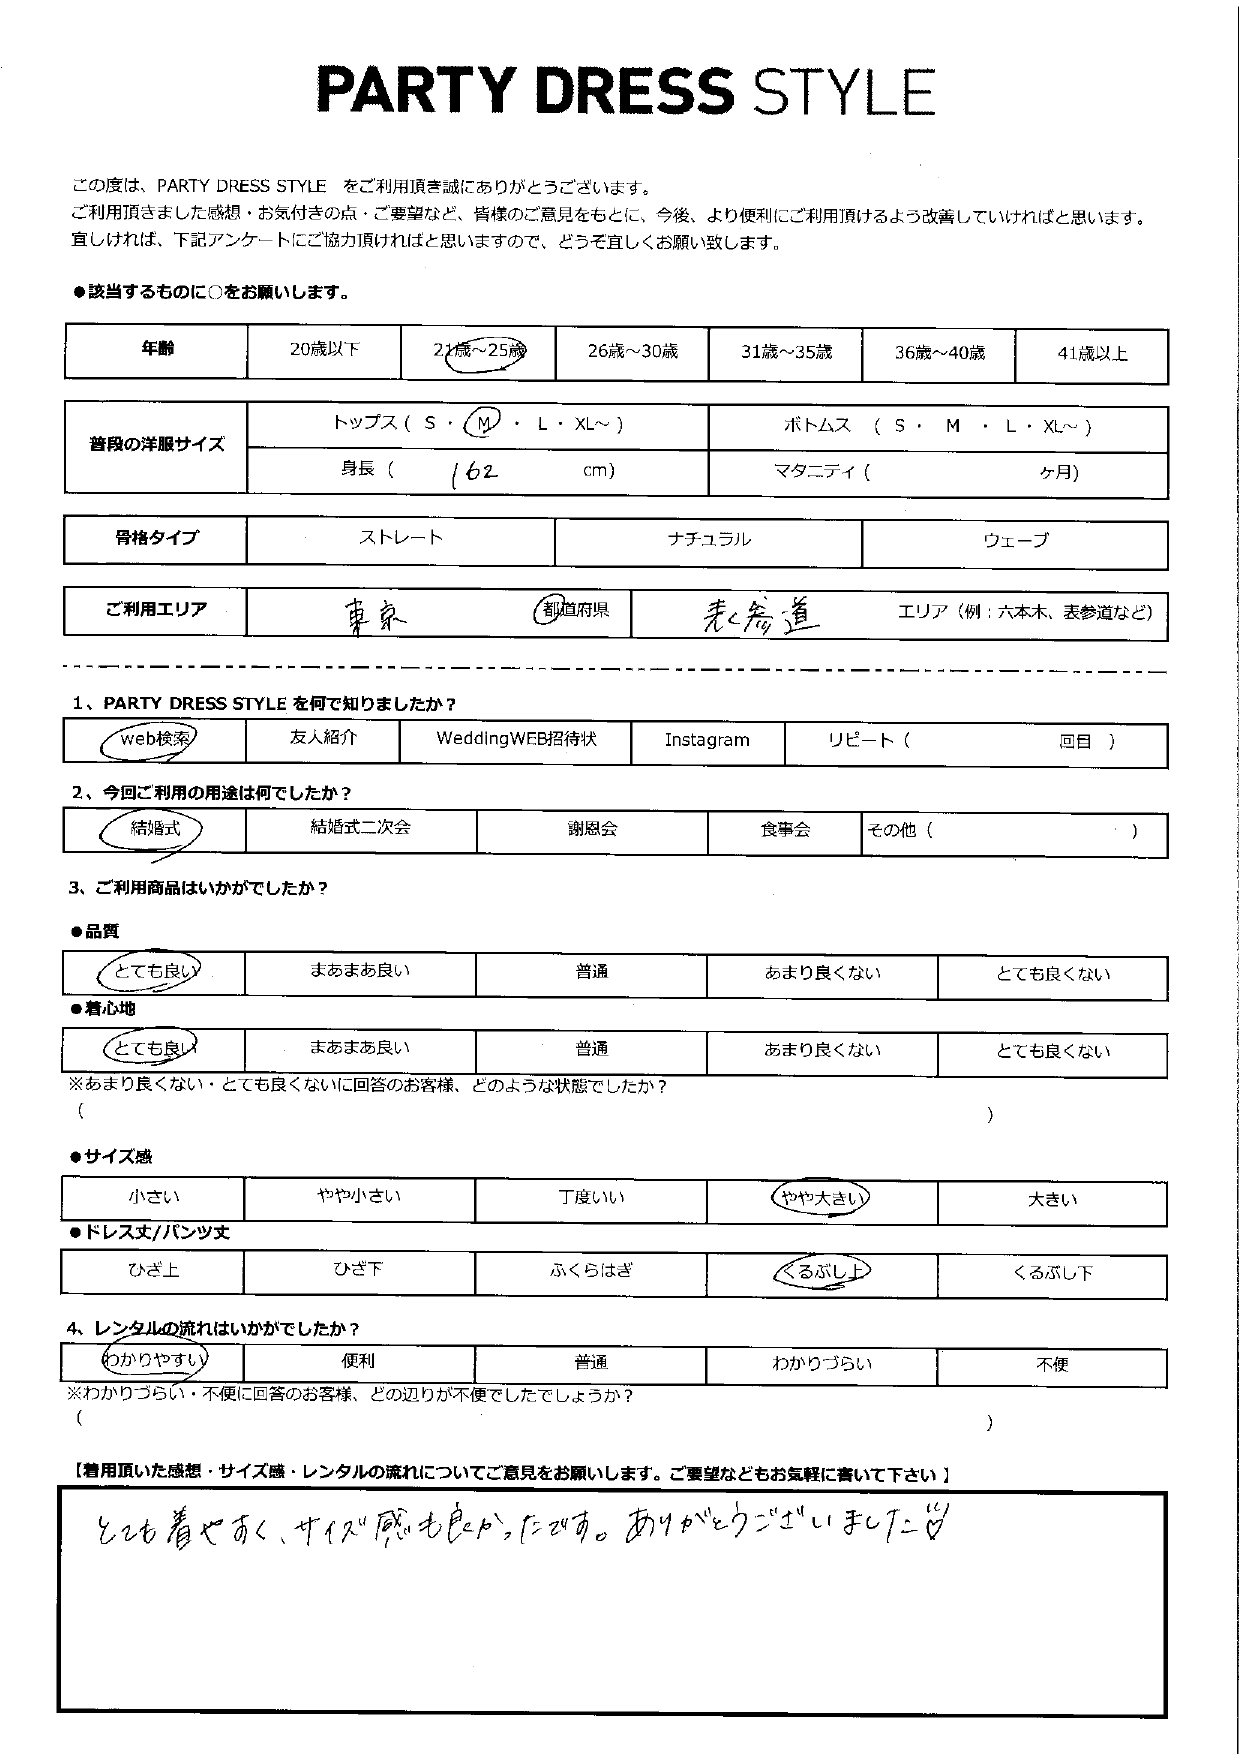 PARTY DRESS STYLE
この度は、PARTY DRESS STYLE をご利用頂き誠にありがとうございます。
ご利用頂きました感想・お気付きの点・ご要望など、皆様のご意見をもとに、今後、より便利にご利用頂けるよう改善していければと思います。
宜しければ、下記アンケートにご協力頂ければと思いますので、どうぞ宜しくお願い致します。
●該当するものに○をお願いします。
年齢 20歳以下 21歳～25歳 26歳～30歳 31歳～35歳 36歳～40歳 41歳以上
普段の洋服サイズ トップス ( S ・ M ・ L ・ XL～ ) ボトムス ( S ・ M ・ L ・ XL～ )
身長 ( 162 cm) マタニティ ( ヶ月)
骨格タイプ ストレート ナチュラル ウェーブ
ご利用エリア 東京 都道府県 表参道 エリア（例：六本木、表参道など）
1、PARTY DRESS STYLE を何で知りましたか？
web検索 友人紹介 WeddingWEB招待状 Instagram リピート ( 回目 )
2、今回ご利用の用途は何でしたか？
結婚式 結婚式二次会 謝恩会 食事会 その他 ( )
3、ご利用商品はいかがでしたか？
●品質
とても良い まあまあ良い 普通 あまり良くない とても良くない
●着心地
とても良い まあまあ良い 普通 あまり良くない とても良くない
※あまり良くない・とても良くないに回答のお客様、どのような状態でしたか？
( )
●サイズ感
小さい やや小さい 丁度いい やや大きい 大きい
●ドレス丈/パンツ丈
ひざ上 ひざ下 ふくらはぎ くるぶし上 くるぶし下
4、レンタルの流れはいかがでしたか？
わかりやすい 便利 普通 わかりづらい 不便
※わかりづらい・不便に回答のお客様、どの辺りが不便でしたでしょうか？
( )
【着用頂いた感想・サイズ感・レンタルの流れについてご意見をお願いします。ご要望などもお気軽に書いて下さい】
とても着やすく、サイズ感も良かったです。ありがとうございました